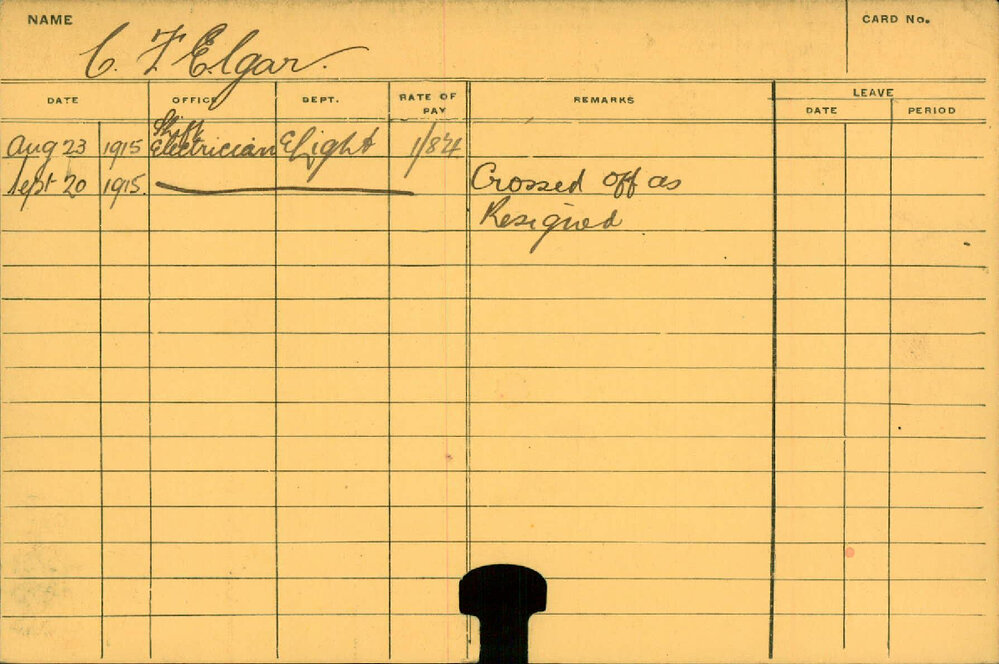 NAME
C. F Elgar.
CARD No.
DATE OFFICE DEPT. RATE OF PAY REMARKS LEAVE
DATE PERIOD
Shift
Aug 23 1915 Electrician ELight
Sept 20 1915. Crossed off as
Resigned